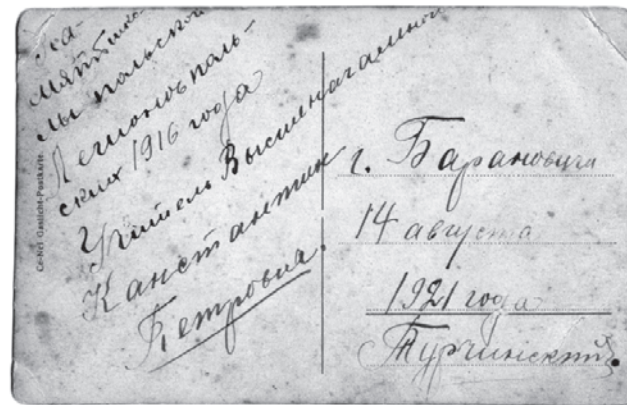 мять шко-
лы польской
Легионов поль-
ских 1916 года
Учитель Высшеначальной
Канстантин
Петровиа.
г. Барановичи
14 августа
1921 года
Турчинский.
Gaslicht-Postkarte.